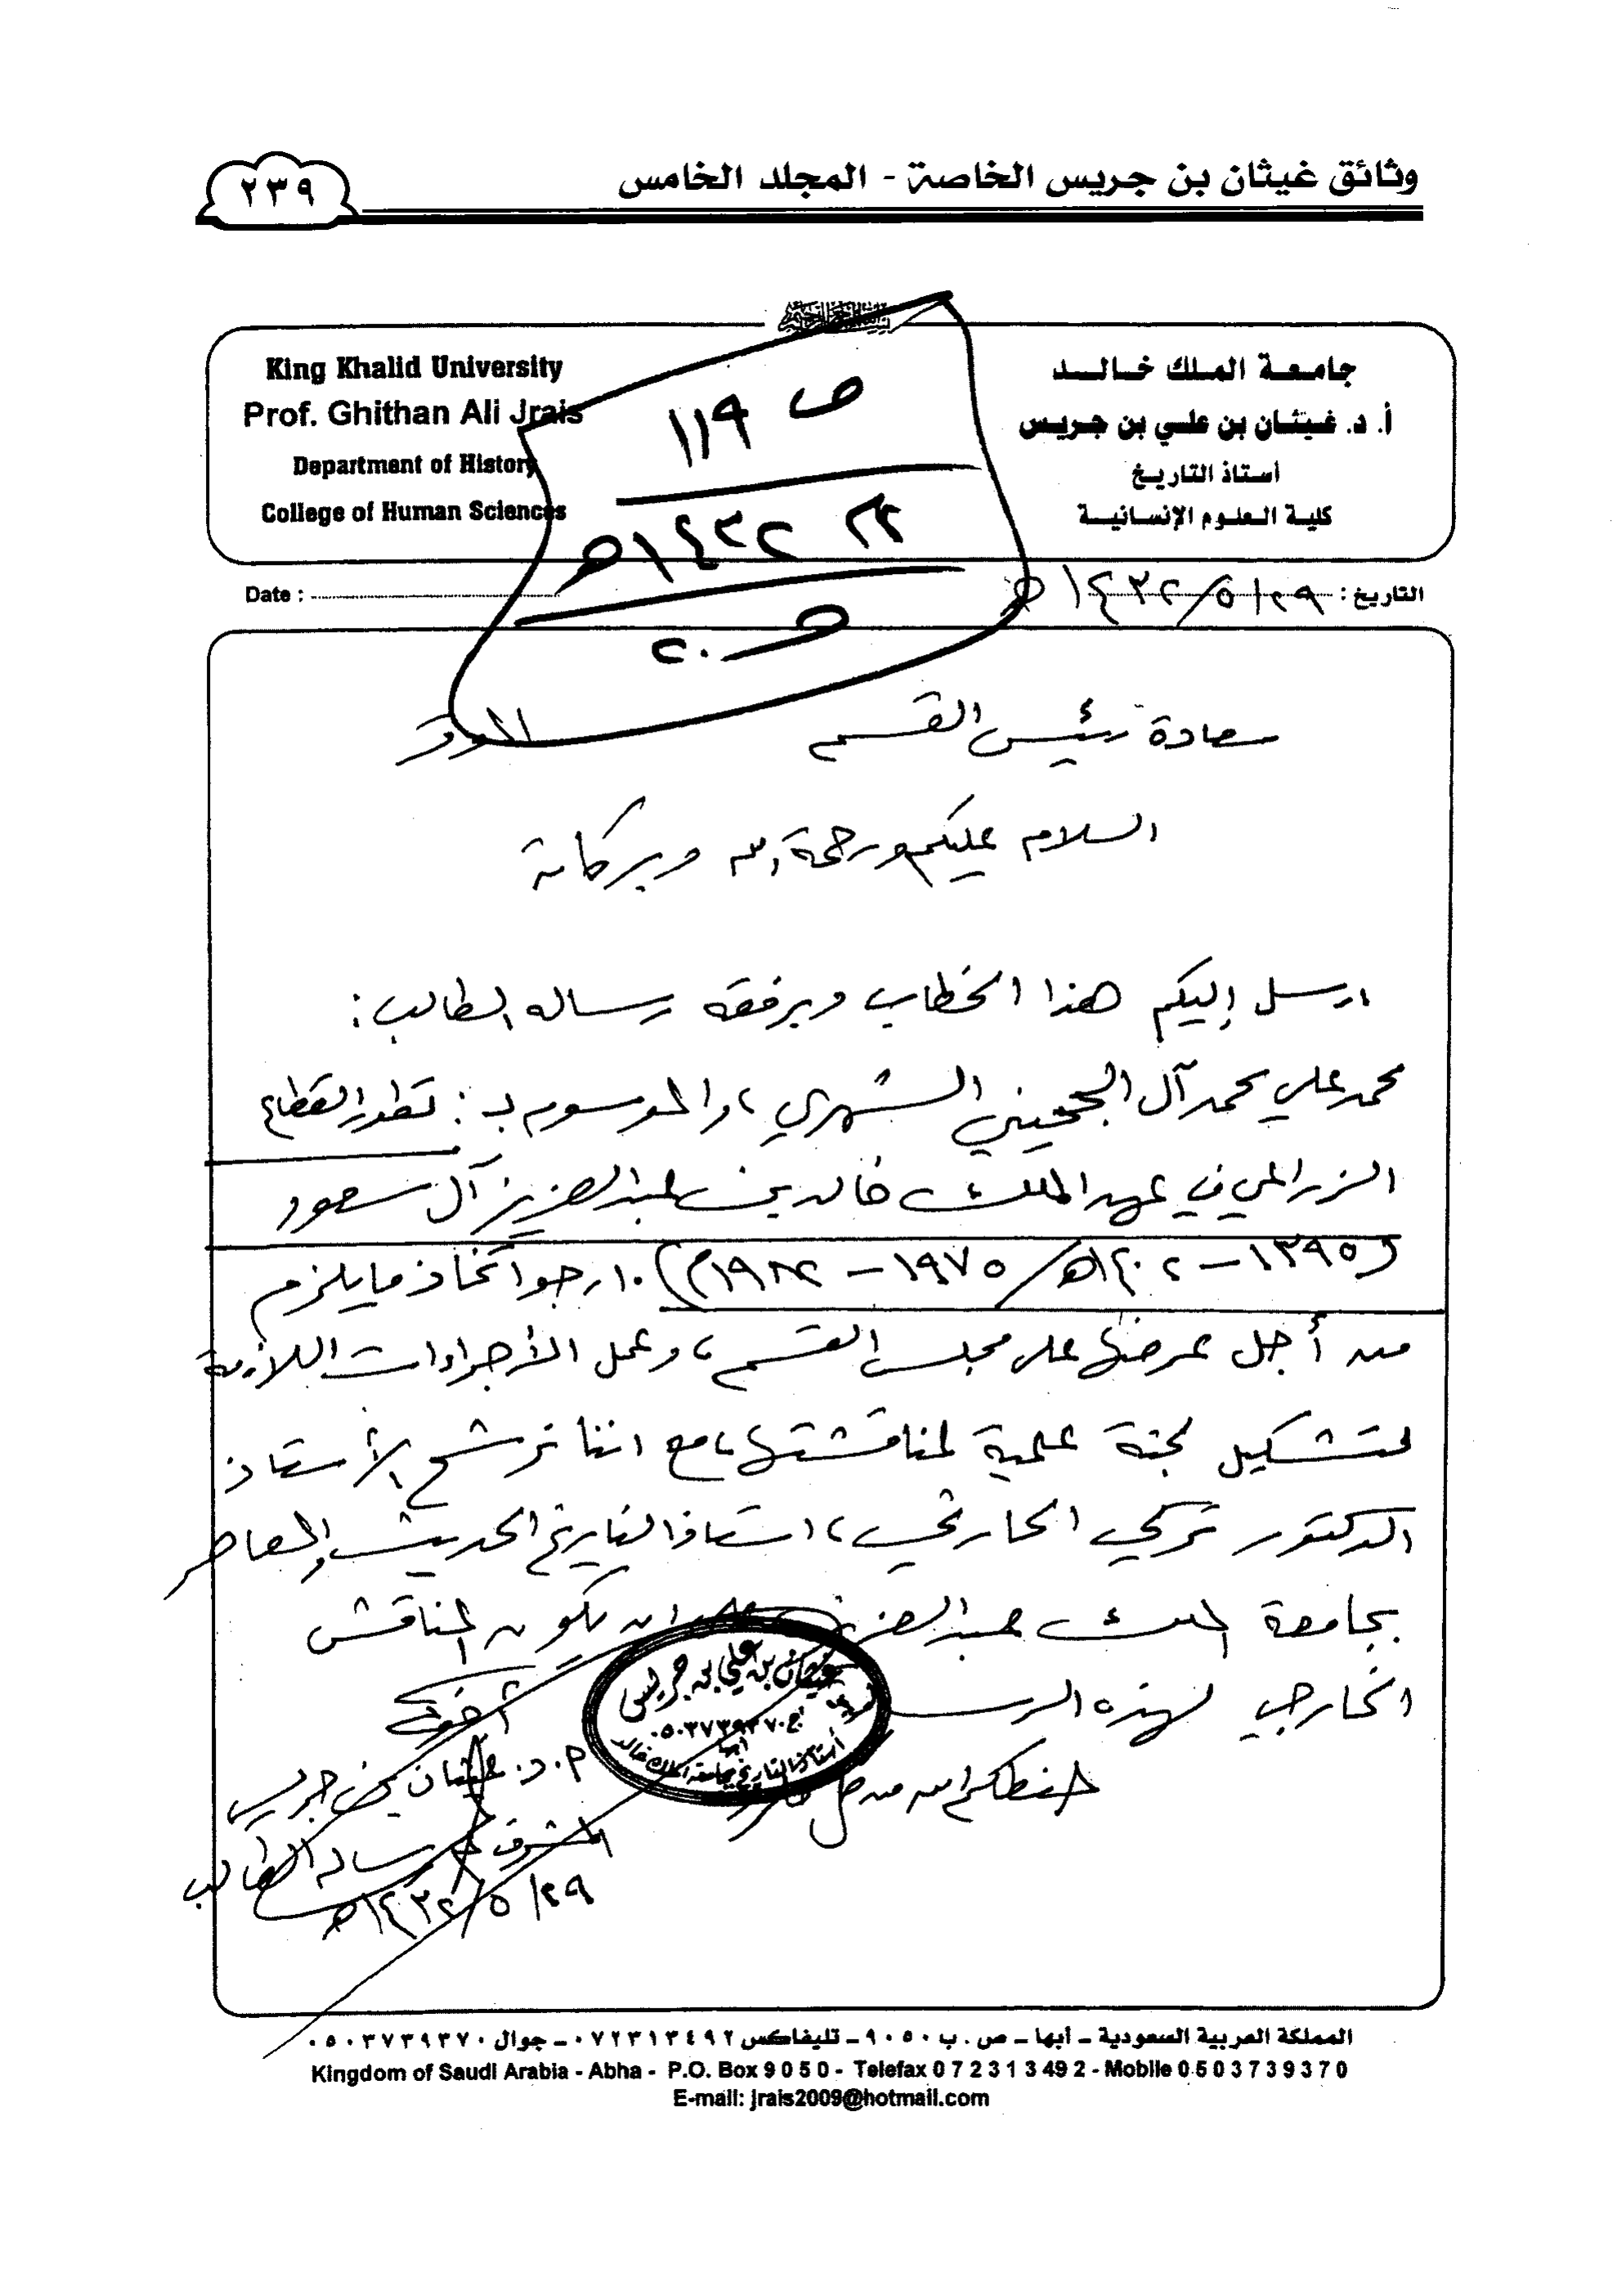 وثائق غيثان بن جريس الخاصة - المجلد الخامس
٢٣٩
جامعة الملك خالد
أ. د. غيثان بن علي بن جريس
أستاذ التاريخ
كلية العلوم الإنسانية
King Khalid University
Prof. Ghithan Ali Jrais
Department of History
College of Human Sciences
ص ١١٩
١٤٣٢هـ
التاريخ : ٢٩/٥/١٤٣٢هـ
Date :
سعادة رئيس القسم الموقر
السلام عليكم ورحمة الله وبركاته
ارسل إليكم هذا الخطاب وبرفقه رساله الطالب :
محمد علي محمد آل الجحيني الشهري ، والموسوم بـ : تطور القطاع
الزراعي في عهد الملك خالد بن عبدالعزيز آل سعود
(١٣٩٥ – ١٤٠٢هـ / ١٩٧٥ – ١٩٨٢م) . ارجوا اتخاذ ما يلزم
من أجل عرضها على مجلس القسم ، وعمل الأجراءات اللازمة
لتشكيل لجنة علمية لمناقشتها ، مع اننا نرشح الأستاذ
الدكتور تركي الحارثي ، استاذ التاريخ الحديث والمعاصر
بجامعة الملك عبدالعزيز ان يكون المناقش
الخارجي لهذه
حفظكم الله من كل
أخوكم
أ.د. غيثان بن جريس
المشرف على رسالة الطالب
٢٩/٥/١٤٣٢هـ
غيثان بن علي بن جريس
ج: ٠٥٠٣٧٣٩٣٧٠
أبها
أستاذ التاريخ بجامعة الملك خالد
المملكة العربية السعودية – أبها – ص . ب ٩٠٥٠ – تليفاكس ٠٧٢٣١٣٤٩٢ – جوال ٠٥٠٣٧٣٩٣٧٠
Kingdom of Saudi Arabia - Abha - P.O. Box 9 0 5 0 - Telefax 0 7 2 3 1 3 49 2 - Mobile 0 5 0 3 7 3 9 3 7 0
E-mail: jrais2009@hotmail.com